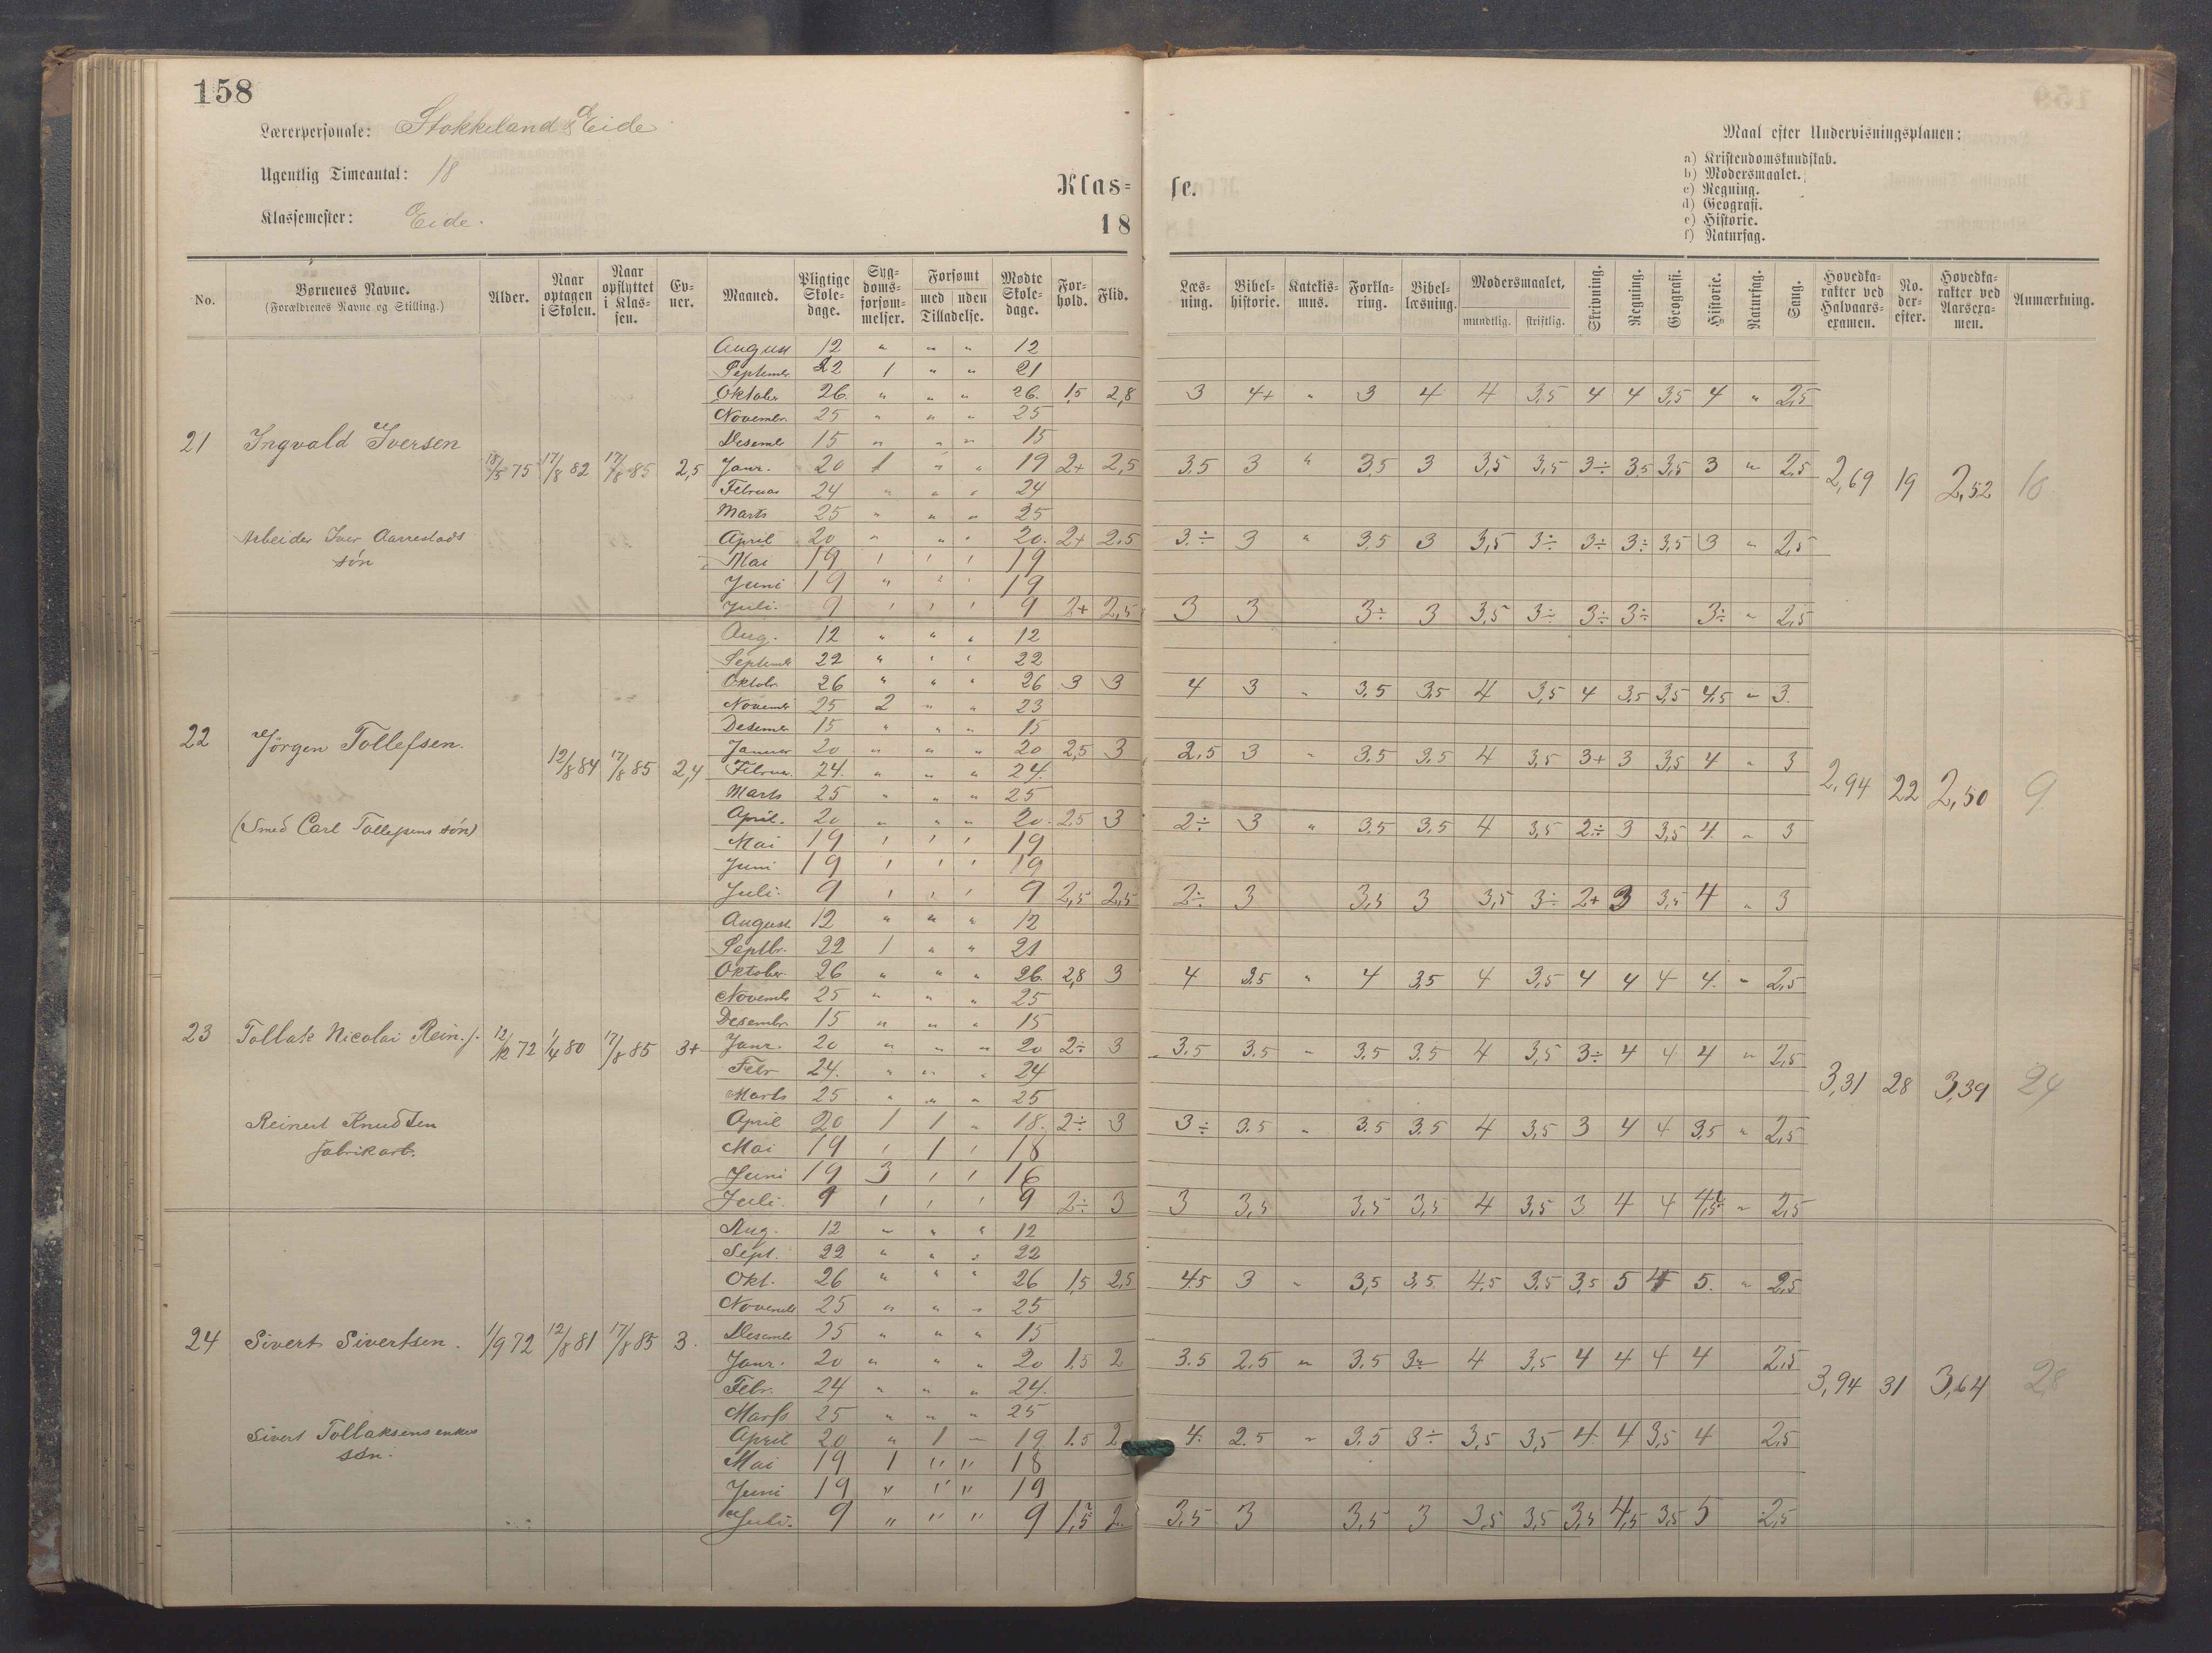 158
Lærerpersonale: Stokkeland & Eide
Ugentlig Timeantal: 18
Klassemester: Eide.
Klas= se.
18
Maal efter Undervisningsplanen:
a) Kristendomskundskab.
b) Modersmaalet.
c) Regning.
d) Geografi.
e) Historie.
f) Naturfag.
No. Børnenes Navne. (Forældrenes Navne og Stilling.) Alder. Naar optagen i Skolen. Naar opflyttet i Klassen. Evner. Maaned. Pligtige Skoledage. Sygdomsforsømmelser. Forsømt med uden Tilladelse. Mødte Skoledage. Forhold. Flid. Læsning. Bibelhistorie. Katekismus. Forklaring. Bibellæsning. Modersmaalet, mundtlig. skriftlig. Skrivning. Regning. Geografi. Historie. Naturfag. Sang. Hovedkarakter ved Halvaarsexamen. No. derefter. Hovedkarakter ved Aarsexamen. Anmærkning.
August 12 " " " 12
Septembr 22 1 " " 21
Oktober 26. " " " 26. 1,5 2,8 3 4+ " 3 4 4 3,5 4 4 3,5 4 " 2,5
Novembr. 25 " " " 25
Desembr 15 " " " 15
21 Ingvald Iversen 18/5 75 17/8 82 17/8 85 2,5 Janr. 20 1 " " 19 2+ 2,5 3.5 3 " 3,5 3 3,5 3,5 3÷ 3.5 3,5 3 " 2,5 2,69 19 2,52 10
Februar 24 " " " 24
Marts 25 " " " 25
Arbeider Iver Aarrestads April 20 " " " 20. 2+ 2.5 3.÷ 3 " 3,5 3 3,5 3÷ 3÷ 3÷ 3,5 3 " 2,5
søn Mai 19 " " " 19
Juni 19 " " " 19
Juli. 9 " " " 9 2+ 2,5 3 3 3÷ 3 3,5 3÷ 3÷ 3÷ 3÷ " 2,5
Aug. 12 " " " 12
Septembr 22 " " " 22
Oktobr. 26 " " " 26 3 3 4 3 " 3.5 3,5 4 3,5 4 3,5 3,5 4,5 " 3.
Novembr 25 2 " " 23
Desember 15 " " " 15
22 Jörgen Tollefsen. 12/8 84 17/8 85 2,4 Januar 20 " " " 20 2,5 3 2.5 3 " 3.5 3.5 4 3,5 3+ 3 3,5 4 " 3 2,94 22 2,50 9
Februar. 24. " " " 24.
Marts 25 " " " 25
(Smed Carl Tollefsens søn) April. 20 " " " 20. 2.5 3 2÷ 3 " 3.5 3,5 4 3,5 2÷ 3 3,5 4 " 3
Mai 19 " " " 19
Juni 19 " " " 19
Juli. 9 " " " 9 2,5 2,5 2÷ 3 3,5 3 3,5 3÷ 2+ 3 3,5 4 " 3
August. 12 " " " 12
Septbr. 22 1 " " 21
Oktober. 26 " " " 26. 2,8 3 4 3.5 " 4 3,5 4 3,5 4 4 4 4. " 2,5
Novembr 25 " " " 25
Desembr 15 " " " 15
23 Tollak Nicolai Rein. 12/12 72 1/4 80 17/8 85 3+ Janr. 20 " " " 20 2÷ 3 3.5 3.5 " 3.5 3.5 4 3,5 3÷ 4 4 4 " 2,5 3,31 28 3,39 24
Febr 24. " " " 24
Marts 25 " " " 25
Reinert Knudsen April 20 1 1 " 18. 2÷ 3 3÷ 3.5 " 3.5 3.5 4 3,5 3 4 4 3,5 " 2,5
fabrikarb. Mai 19 " 1 " 18
Juni 19 3 " " 16
Juli. 9 " " " 9 2÷ 3 3 3,5 3,5 3,5 4 3,5 3 4 4 4,5 " 2,5
Aug. 12 " " " 12
Sept. 22 " " " 22
Okt. 26 " " " 26 1,5 2,5 4.5 3 " 3,5 3,5. 4,5 3,5 3,5 5 4 5. " 2,5
Novembr 25 " " " 25
24 Sivert Sivertsen. 1/9 72 12/8 81 17/8 85 3. Desembr 15 " " " 15
Janr. 20 " " " 20 1.5 2 3.5 2.5 " 3.5 3÷ 4 3,5 4 4 4 4 2,5 3,94 31 3,64 28
Febr. 24 " " " 24.
Marts 25 " " " 25
Sivert Tollaksens enkes April 20 " 1 " 19 1.5 2 4. 2.5 " 3.5 3÷ 3,5 3,5 4. 4 3,5 4 2,5
søn. Mai 19 1 " " 18
Juni 19 " " " 19
Juli. 9 " " " 9 1,5 2 3,5 3 3,5 3 3,5 3,5 3,5 4,5 3,5 5 2,5